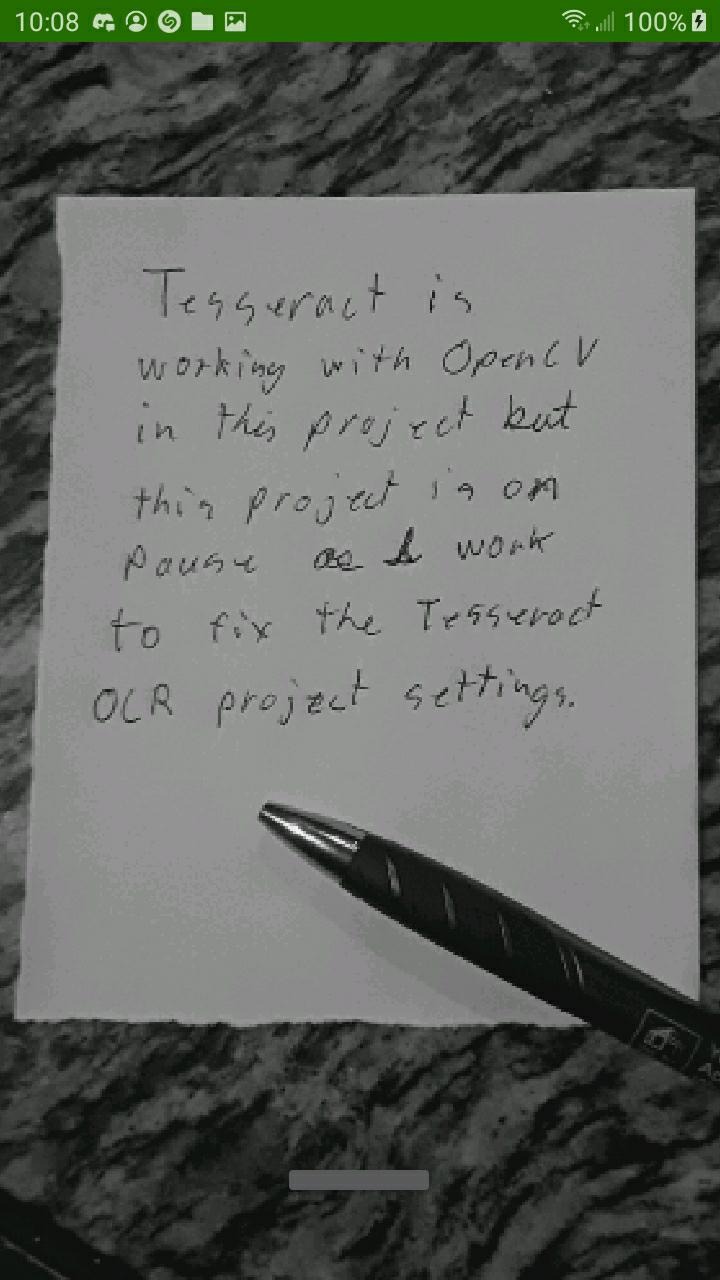 10:08 100%
Tesseract is
working with OpenCV
in this project but
this project is on
pause as I work
to fix the Tesseract
OCR project settings.